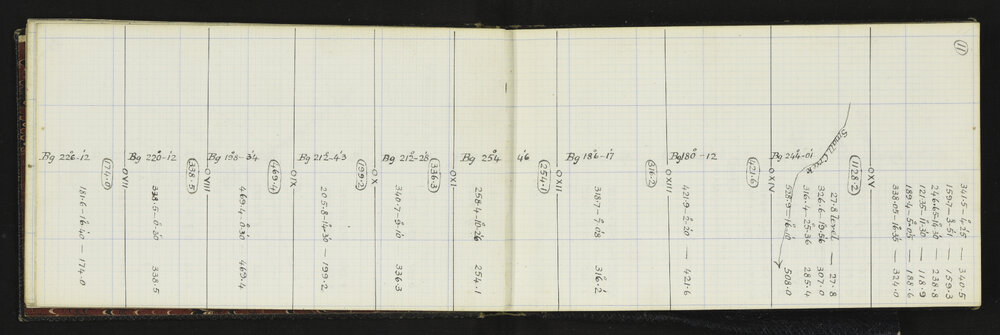 11
Bg 226°-12'
(174.0)
OVII
181.6 - 16°-40' 174.0
Bg 220°-12'
(338.5)
OVIII
338.5 - 0°-20' 338.5
Bg 198°-34'
(469.4)
OIX
469.4 - 0°-30' 469.4
Bg 212°-43'
(199.2)
OX
205.8 - 14°-30' — 199.2
Bg 212°-28'
(336.3)
OXI
340.7 - 9°-10' 336.3
Bg 254° 46'
(254.1)
OXII
258.4 - 10°-26' 254.1
Bg 186°-17'
(316.2)
OXIII
318.7 - 8°-08' 316.2
Bg 180°-12'
(421.6)
OXIV
421.9 - 2°-20' — 421.6
Bg 244°-01'
(1128.2)
OXV
Small Creek
27.8 level — 27.8
326.6 - 19°-56' 307.0
316.4 - 25°-36' 285.4
528.9 - 16°-10' 508.0
341.5 - 4°-25' — 340.5
159.7 - 3°-51' — 159.3
246.65 - 14°-30' — 238.8
121.35 - 11°-30' — 118.9
189.4 - 5°-05' — 188.6
338.05 - 16°-35' — 324.0